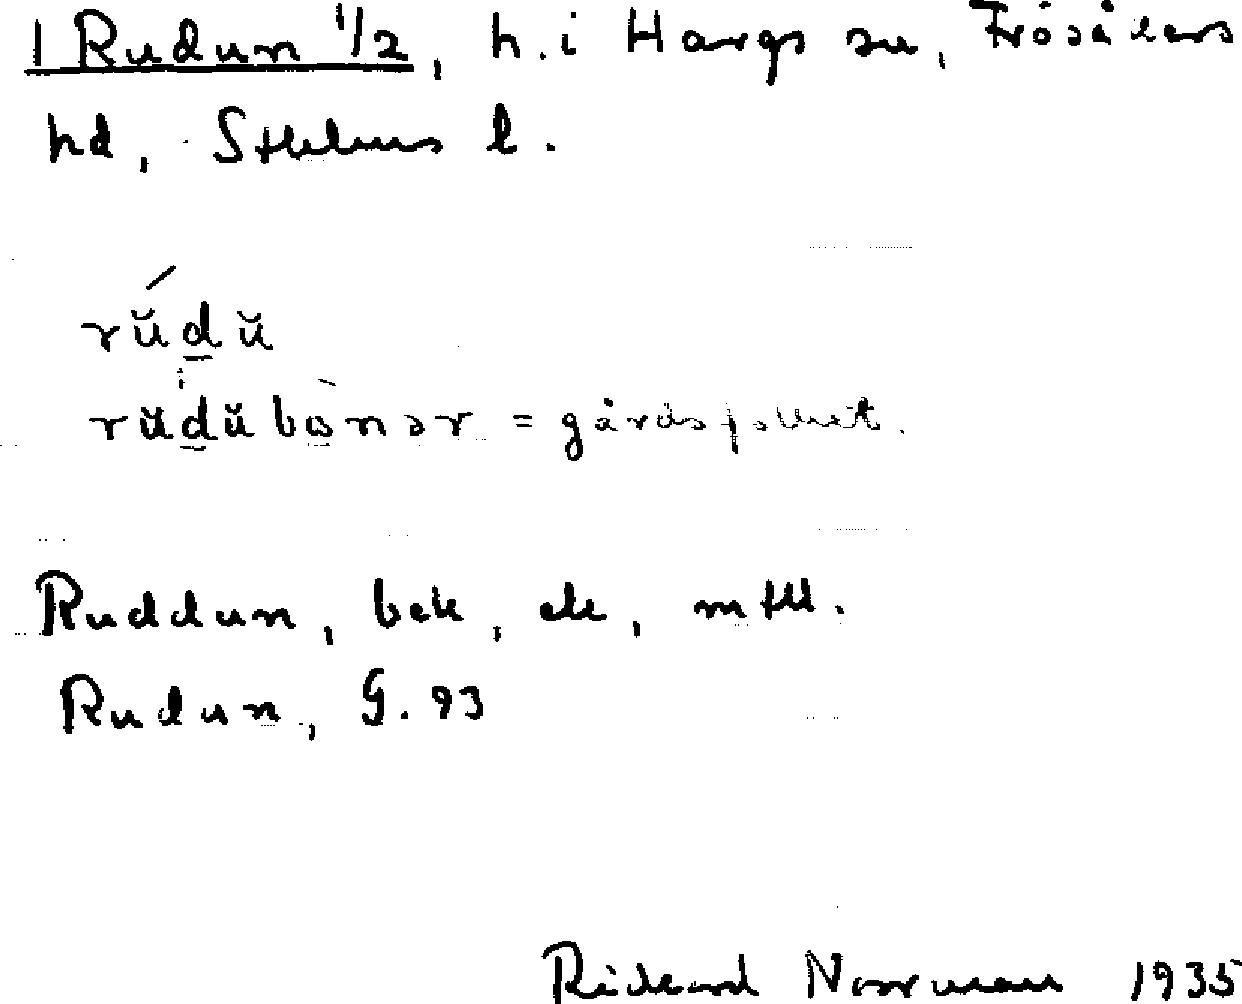 1 Rudun 1/2, h. i Hargs sn, Frösåkers
hd, Sthlms l.
rŭ́d̲ŭ
rŭd̲ŭbo̲nər = gårdsfolket.
Ruddun, bek, ek, mtll.
Rudun, G. 93
Rickard Norrman 1935